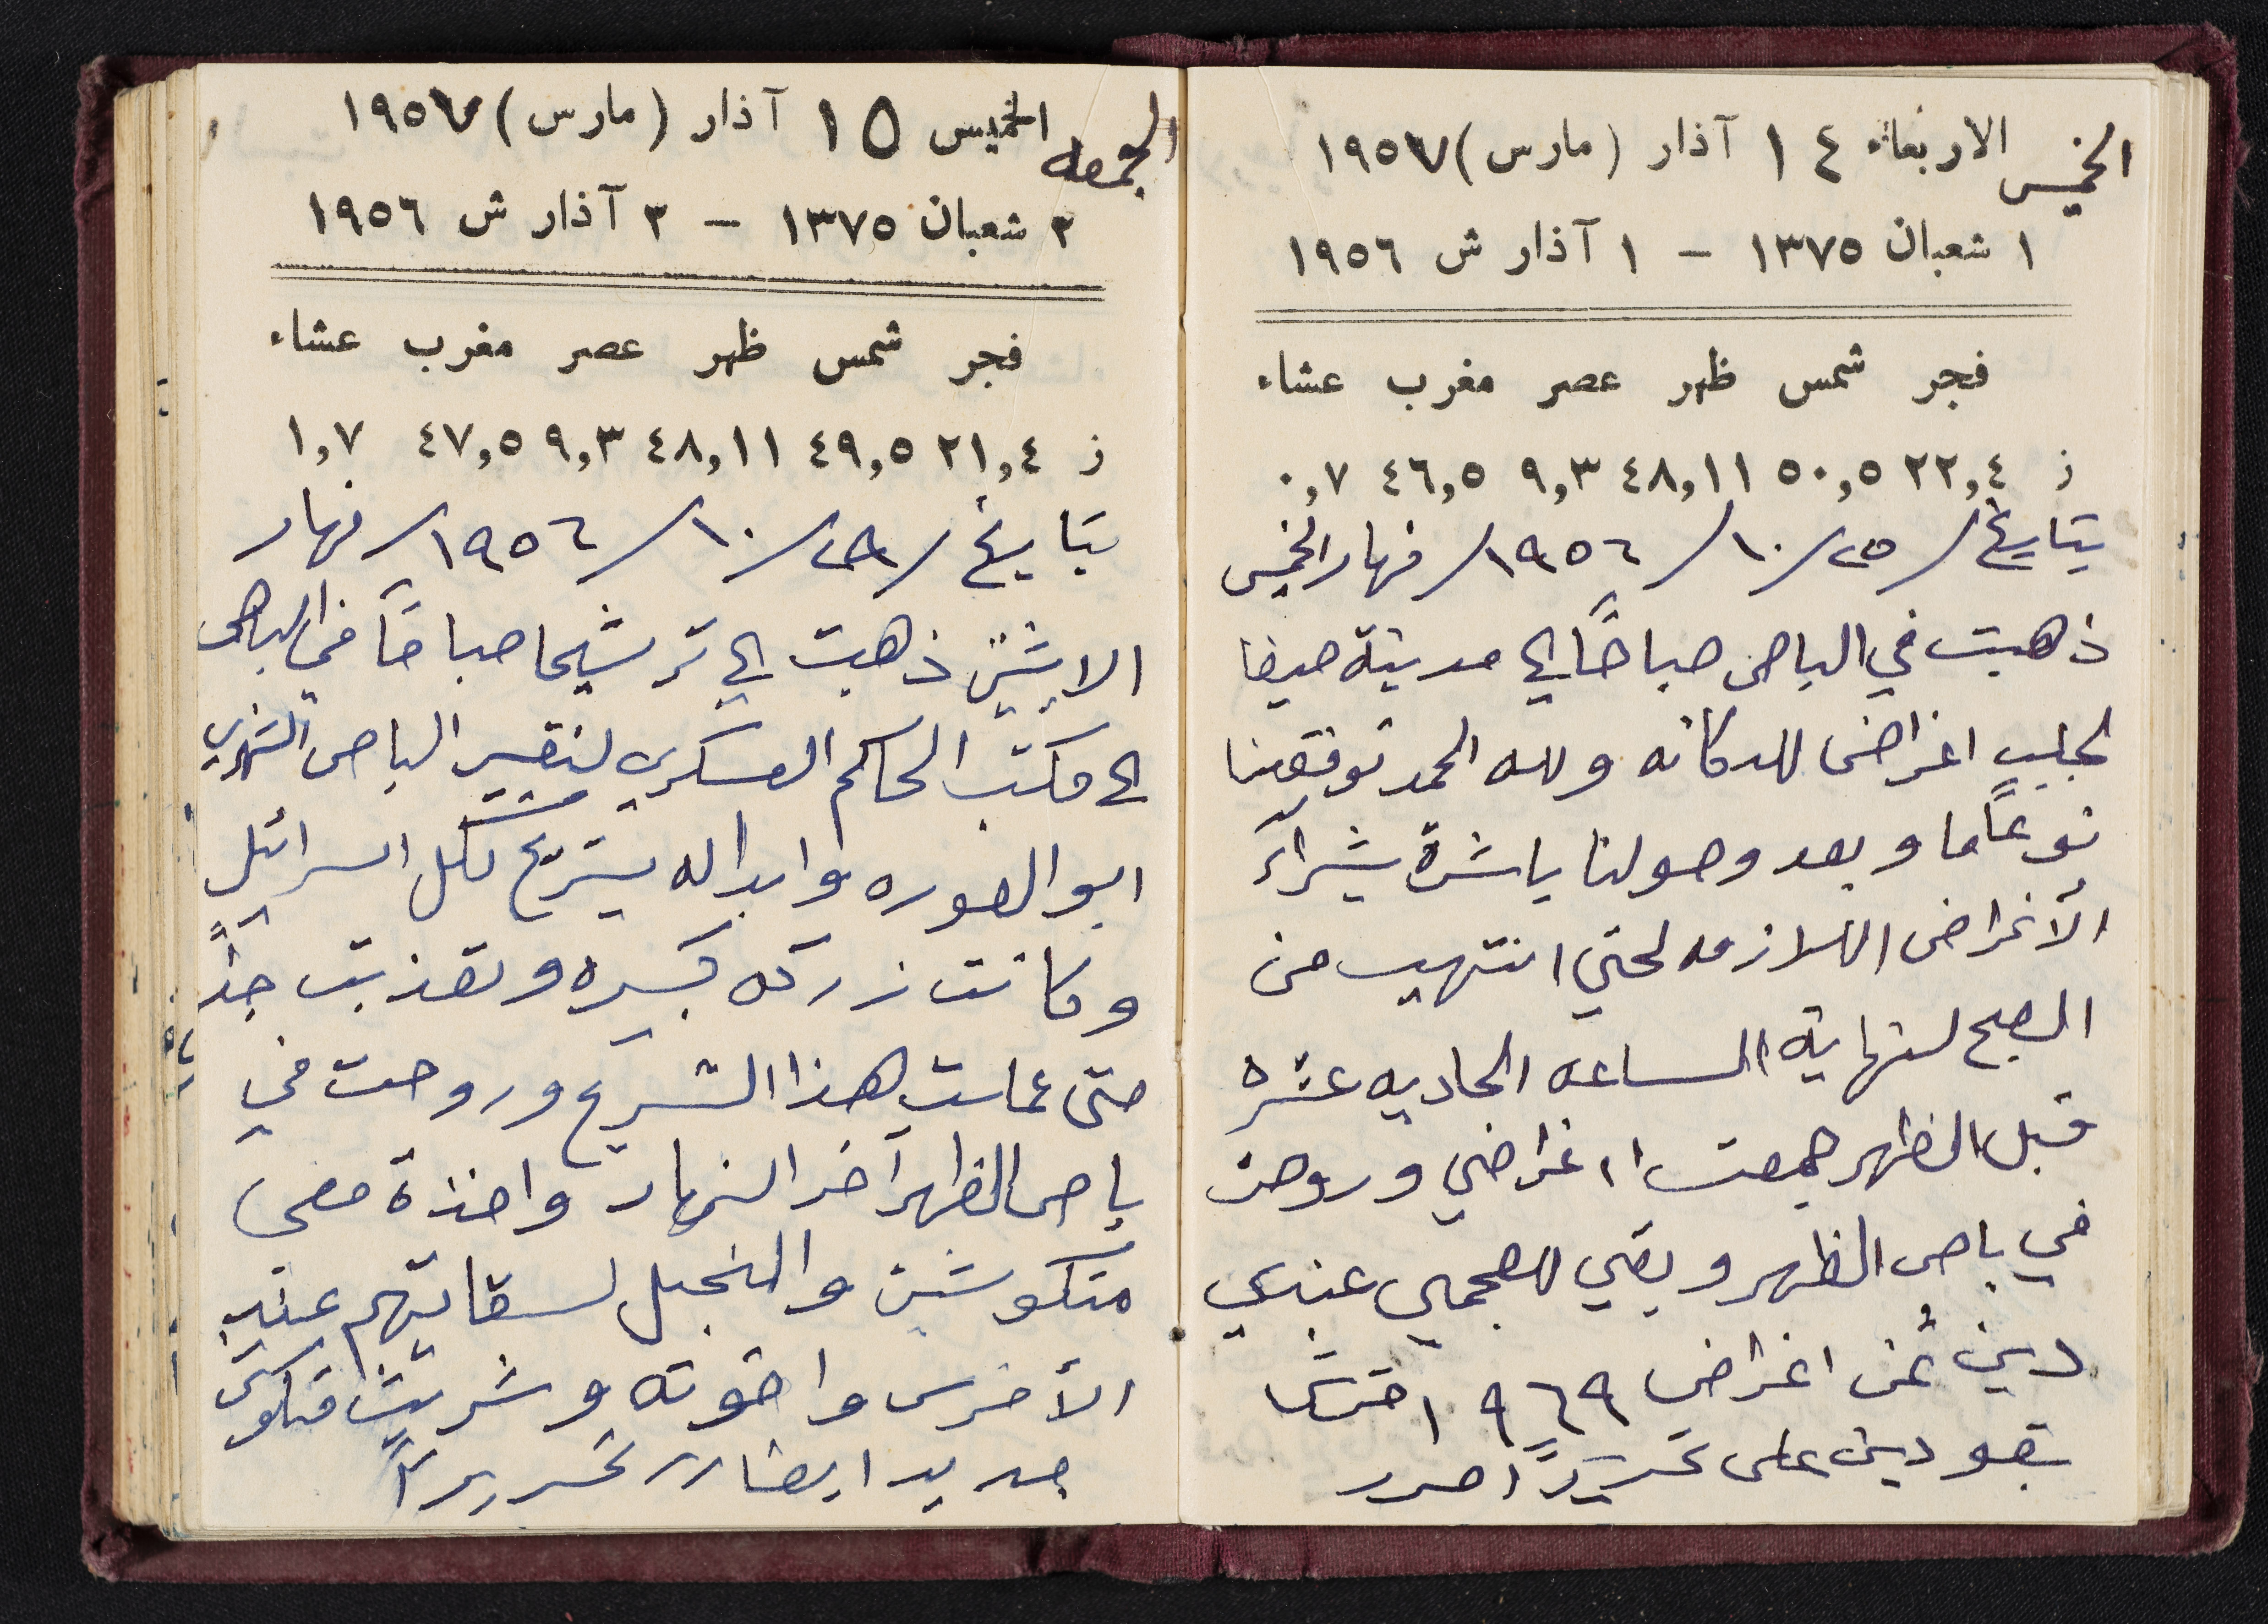 الخميس الاربعاء ١٤ آذار (مارس) ١٩٥٧
١ شعبان ١٣٧٥ – ١ آذار ش ١٩٥٦
فجر شمس ظهر عصر مغرب عشاء
ز ٢٢,٤ ٥٠,٥ ٤٨,١١ ٩,٣ ٤٦,٥ ٠,٧
بتاريخ /٢٥/١٠/١٩٥٦/ نهار الخميس
ذهبت في الباص صباحًا الى مدينة حيفا
لجلب اغراض للدكانه ولله الحمد توفقنا
نوعًا ما وبعد وصولنا باشرة بشرآء
الأغراض اللازمه لحتي انتهيت من
الصبح لنهاية الساعه الحاديه عشره
قبل الظهر جمعت اغراضي وروحت
في باص الظهر وبقي للعجمي عندي
دين ثمن اغراض ٩٦٩
بقو دين على تحريرًا
الجمعه الخميس ١٥ آذار (مارس) ١٩٥٧
٢ شعبان ١٣٧٥ – ٢ آذار ش ١٩٥٦
فجر شمس ظهر عصر مغرب عشاء
ز ٢١,٤ ٤٩,٥ ٤٨,١١ ٩,٣ ٤٧,٥ ١,٧
بتاريخ /٢٩/١٠/١٩٥٦/ نهار
الاثنين ذهبت الى ترشيحا صباحًا في الباص
الى مكتب الحاكم العسكري لنغير الباص الشهري
ابو الصوره وابداله بتسريح لكل اسرائيل
وكانت زركه كبيره وتعذبت جدًا
حتى عملت هذا التسريح وروحت في
باص الظهر آخر النهار واخذة معي
منكوشين والمنجل لسقايتهم عند
الأخرس واخوته وشريت منكوش
جديد ايضا تحريرًا